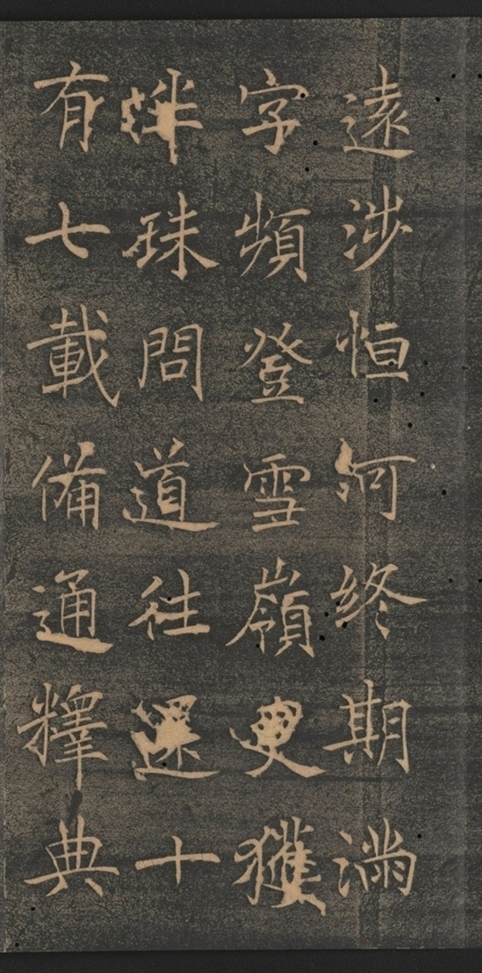 遠涉恒河終期滿
字頻登雪嶺更獲
珠問道往還十
有七載備通釋典